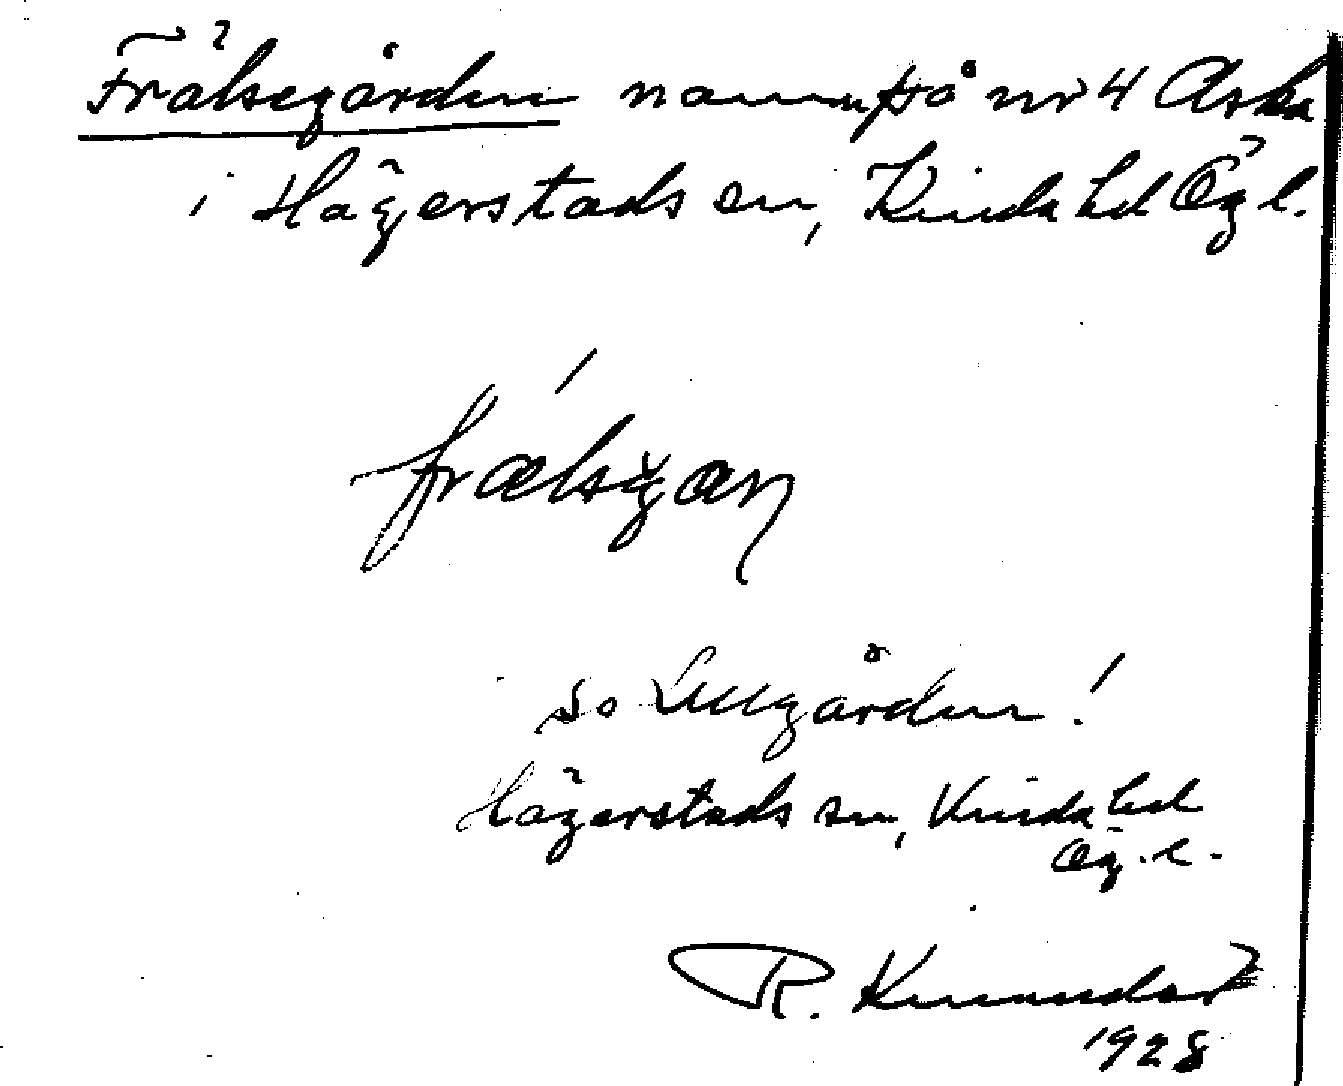 Frälsegården namn på nr 4 Aska
i Hägerstads sn, Kinda hd Ög l.
frälsgan
so Lillgården!
Hägerstads sn, Kinda hd
Ög. l.
R.
1928